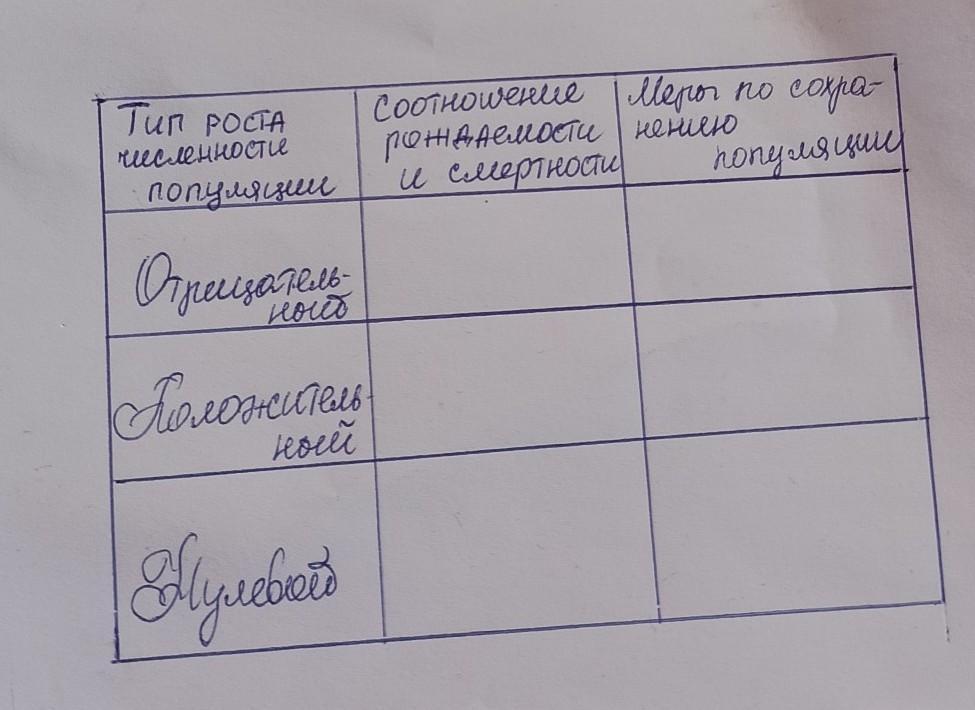 Тип роста
численности
популяции
Соотношение
рождаемости
и смертности
Меры по сохра-
нению
популяции
Отрицатель-
ный
Положитель-
ный
Нулевой